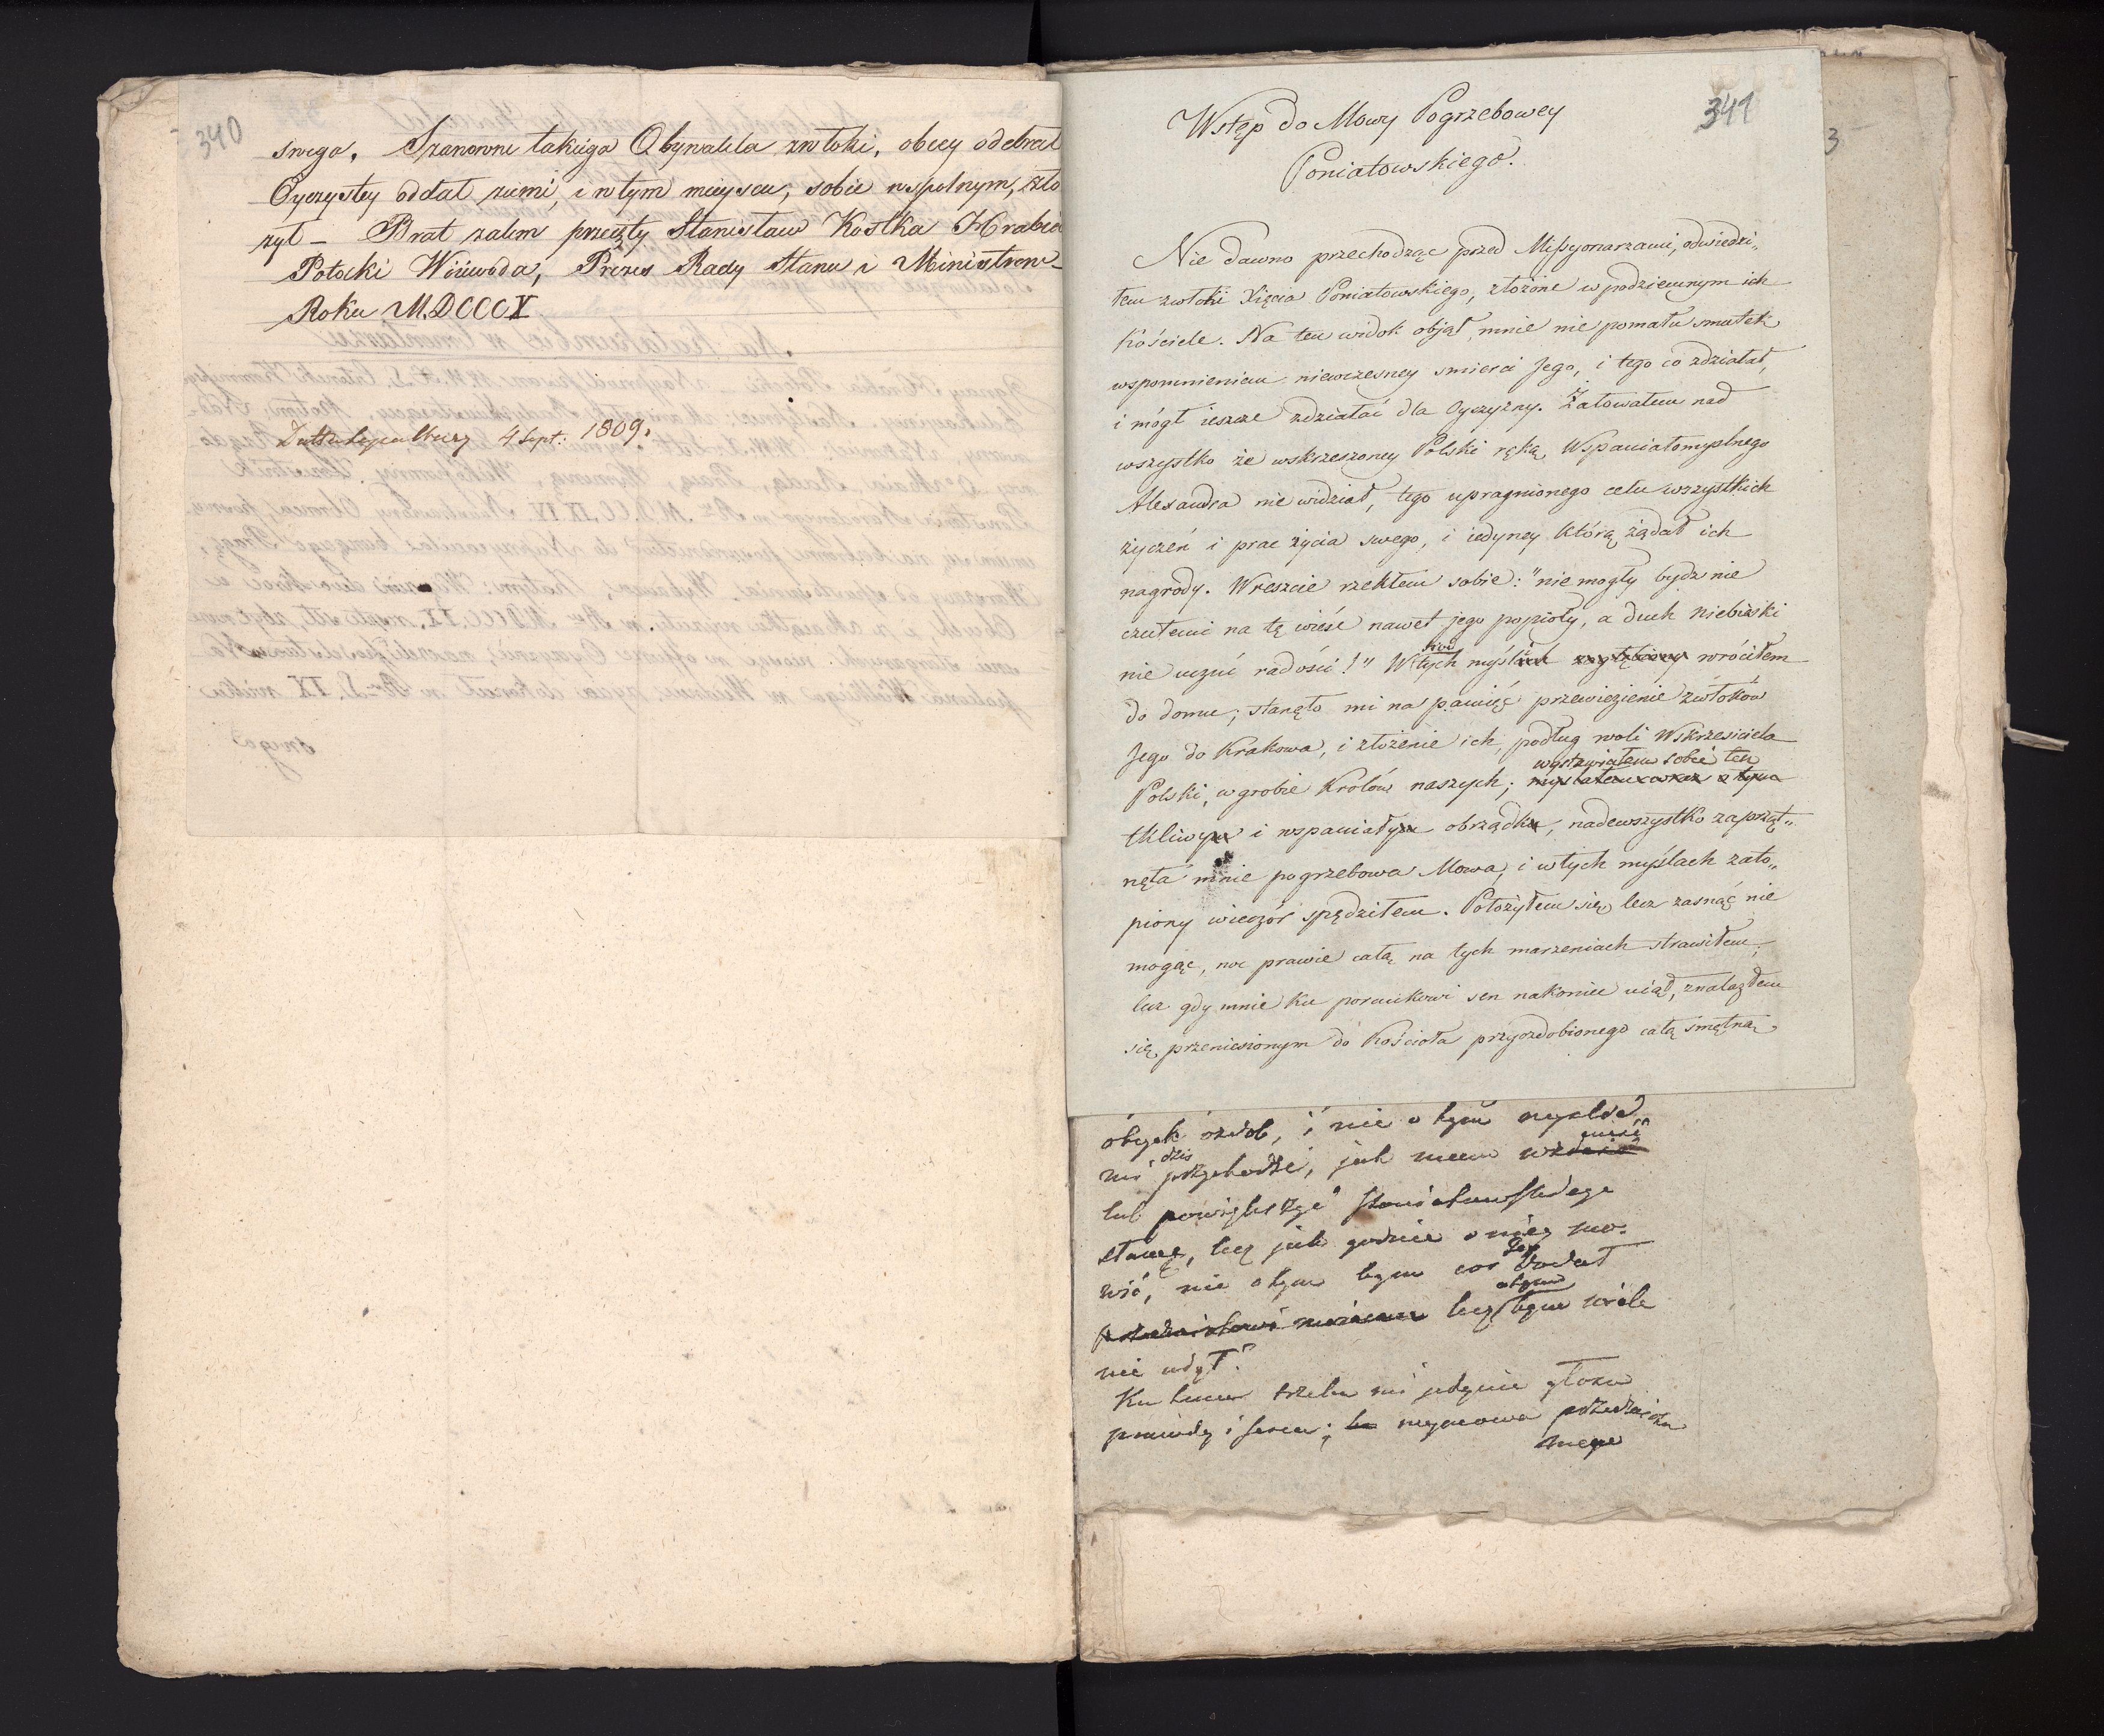 340
swego. Szanowne takiego Obywatela zwłoki, obcey odebrał
Oyczystey oddał ziemi, i w tym mieyscu, sobie wspolnym, zło
żył – Brat żalem przeięty Stanisław Kostka Hrabia
Potocki Woiewoda, Prezes Rady Stanu i Ministrow
Roku M.DCCCX
4 Sept: 1809.
341
3
Wstęp do Mowy Pogrzebowey
Poniatowskiego.
Nie dawno przechodząc przed Missyonarzami, odwiedzi„
łem zwłoki Xięcia Poniatowskiego, złożone w podziemnym ich
Kościele. Na ten widok objął mnie nie pomału smutek
wspomnieniem niewczesney smierci Jego, i tego co zdziałał,
i mógł ieszcze zdziałać dla Oyczyzny. Żałowałem nad
wszystko że wskrzeszoney Polski ręką Wspaniałomyślnego
Alexandra nie widział, tego upragnionego celu wszystkich
życzeń i prac życia swego, i iedyney którą żądał ich
nagrody. Wreszcie rzekłem sobie: "nie mogły bydz nie
czułemi na tę wieść nawet jego popioły, a duch niebieski
nie uczuć radości!" W tych myślach zagłębiony wróciłem
do domu; stanęło mi na pamięć przewiezienie zwłoków
Jego do Krakowa, i złożenie ich, podług woli Wskrzesiciela
wystawiałem sobie ten
Polski, w grobie Królów naszych; myślałem o tym
tkliwym i wspaniałym obrządku, nadewszystko zaprząt„
nęła mnie pogrzebowa Mowa, i w tych myślach zato„
piony wieczór spędziłem. Położyłem się, lecz zasnąć nie
mogąc, noc prawie całą na tych marzeniach strawiłem;
lecz gdy mnie ku porankowi sen nakoniec uiął, znalazłem
się przeniesionym do Kościoła przyozdobionego całą smętną
obcych ozdob, i nie o tym mysleć
dzis
mi przychodzi, jak mam
lub powiększyć Poniatowskiego
sławę, lecz jak godnie o niey mo„
wić, nie o tym bym co dodał
o tym
lecz bym wiele
nie udął.
Ku temu trzeba mi jedynie głosu
prawdy i serca; wymowa
mego